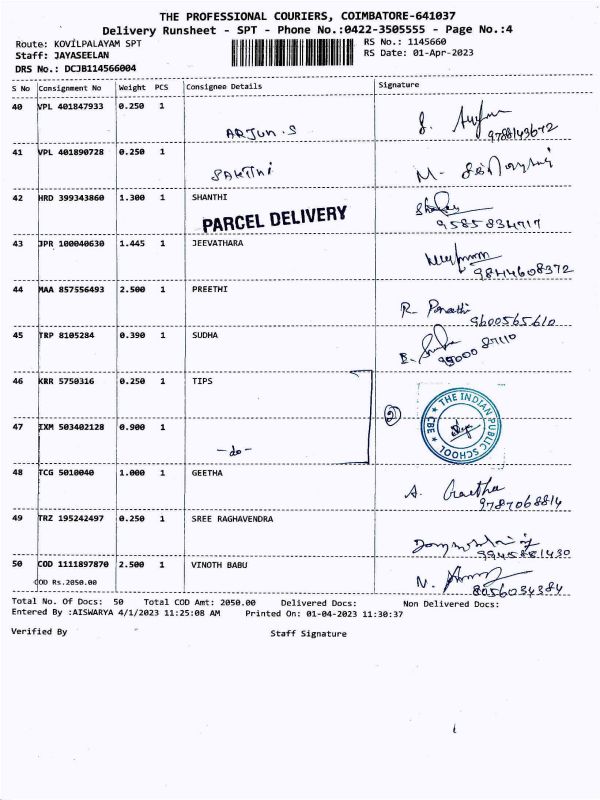 THE PROFESSIONAL COURIERS, COIMBATORE-641037
Delivery Runsheet - SPT - Phone No.:0422-3505555 - Page No.:4
Route: KOVILPALAYAM SPT RS No.: 1145660
Staff: JAYASEELAN RS Date: 01-Apr-2023
DRS No.: DCJB114566004
S No Consignment No Weight PCS Consignee Details Signature
40 VPL 401847933 0.250 1
ARJUN.S 9788143672
41 VPL 401890728 0.250 1
SAKTHI M-
42 HRD 399343860 1.300 1 SHANTHI
PARCEL DELIVERY 9585834717
43 JPR 100040630 1.445 1 JEEVATHARA
9844608372
44 MAA 857556493 2.500 1 PREETHI
R- Preethi 9600565610
45 TRP 8105284 0.390 1 SUDHA
95000 87110
46 KRR 5750316 0.250 1 TIPS
THE INDIAN PUBLIC SCHOOL CBE
47 IXM 503402128 0.900 1
-do-
48 TCG 5010040 1.000 1 GEETHA
A. Geetha 9787068814
49 TRZ 195242497 0.250 1 SREE RAGHAVENDRA
9945881430
50 COD 1111897870 2.500 1 VINOTH BABU
COD Rs.2050.00 N. 8056034384
Total No. Of Docs: 50 Total COD Amt: 2050.00 Delivered Docs: Non Delivered Docs:
Entered By :AISWARYA 4/1/2023 11:25:08 AM Printed On: 01-04-2023 11:30:37
Verified By Staff Signature